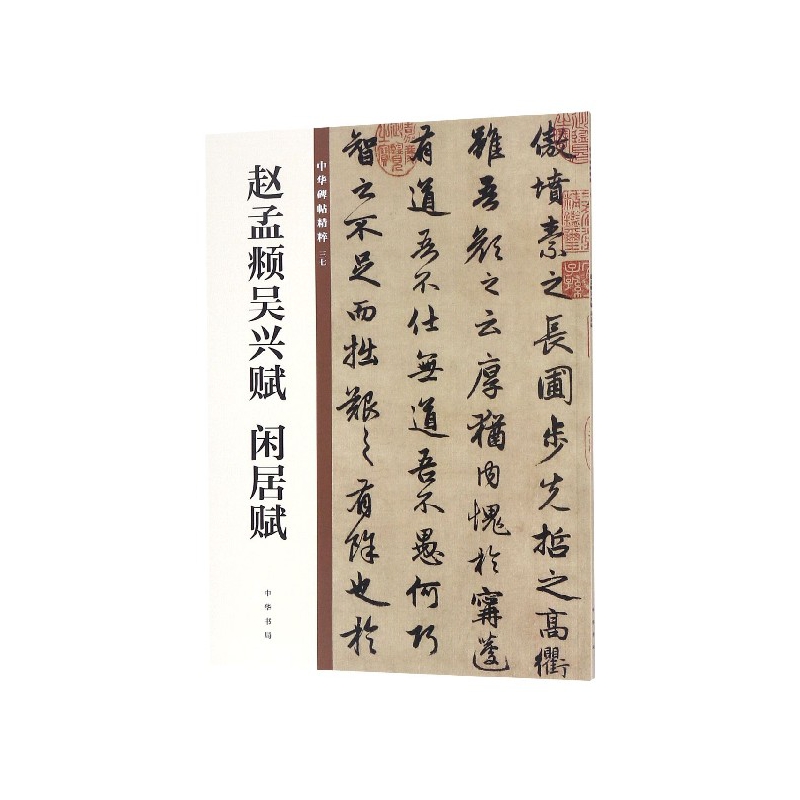 赵孟頫吴兴赋 闲居赋
中华书局
中华碑帖精粹 三七
傲墳素之長圃步先哲之高衢
雖吾顔之云厚猶內愧於甯蘧
有道吾不仕無道吾不愚何巧
智之不足而拙艱之有餘也於